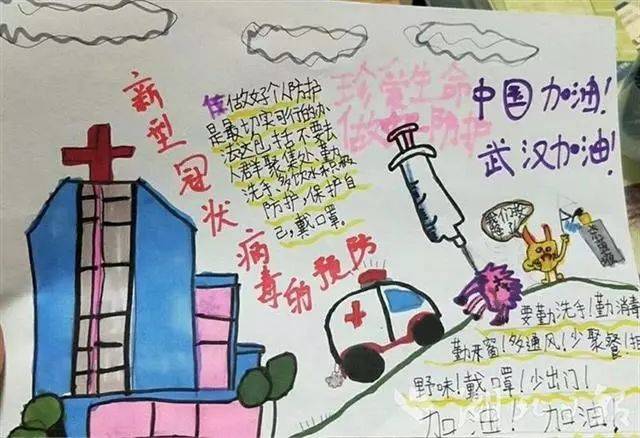 新型冠状病毒的预防
做好个人防护
是最切实可行的办
法这包括不要去
人群聚集处,勤
洗手,多饮水积极
防护,保护自
己,戴口罩。
珍爱生命
做好防护
中国加油!
武汉加油!
要勤洗手!勤消毒
勤开窗!多通风!少聚餐!拒
野味!戴口罩!少出门!
加油!加油!